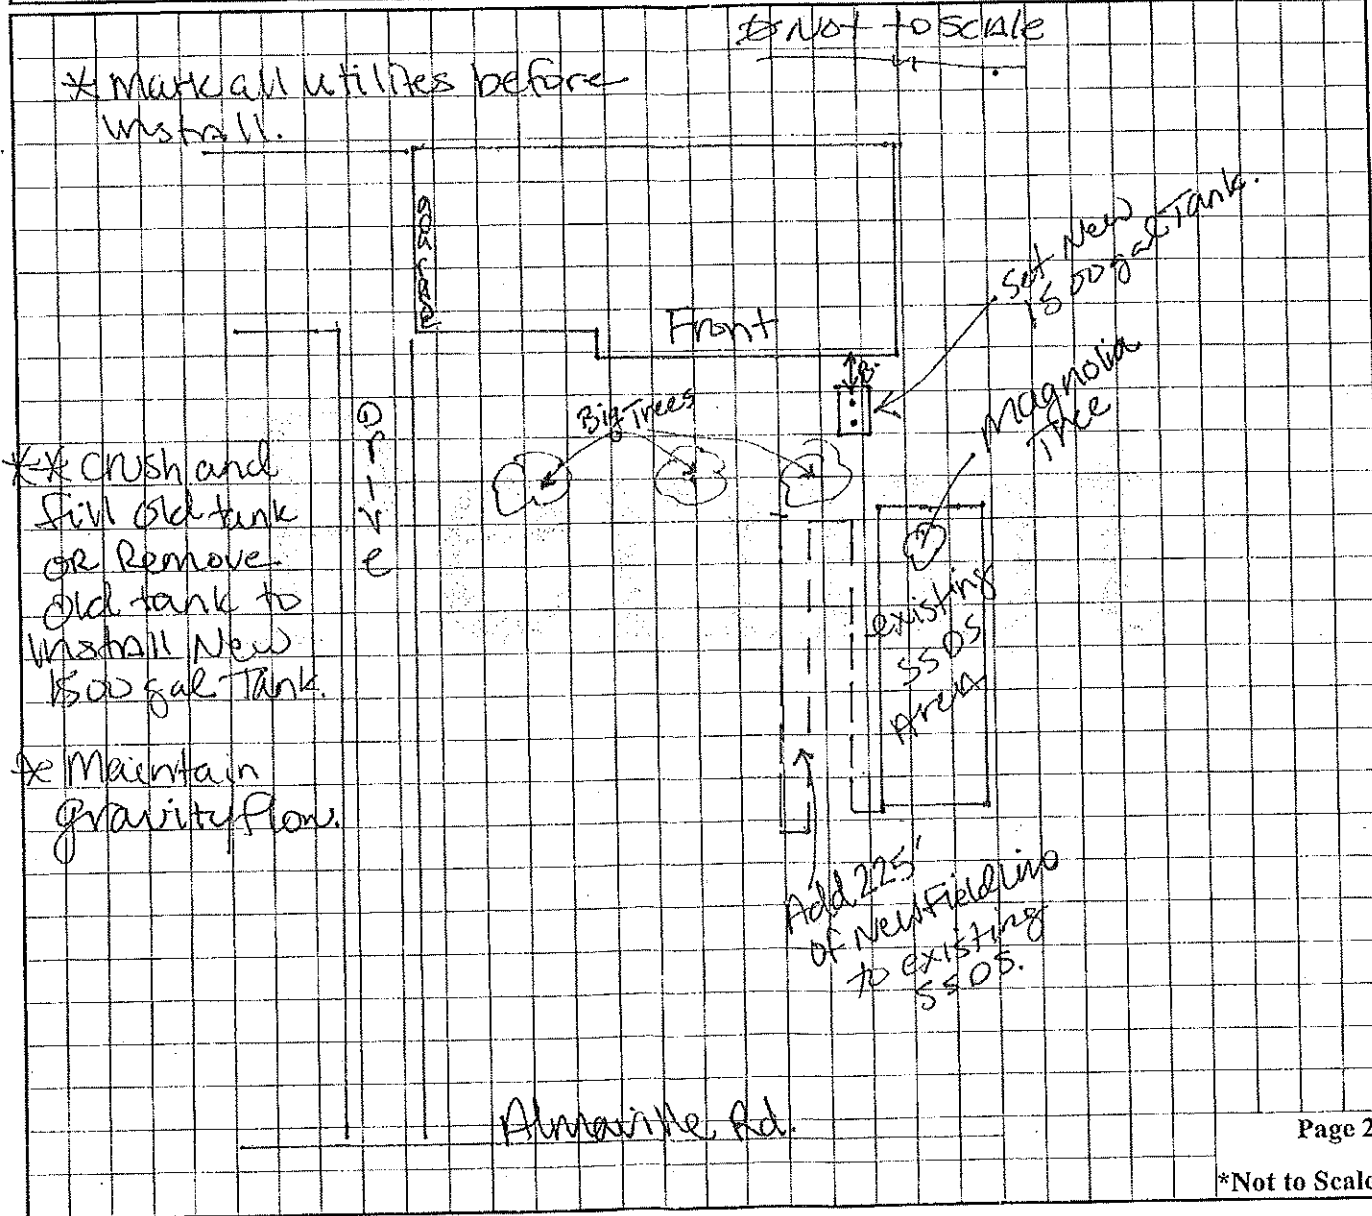 * Not to scale
* Mark all utilites before
install.
garage
Front
Set New
1500 gal Tank.
Magnolia
Tree
Big Trees
Drive
** Crush and
fill old tank
OR Remove
old tank to
install New
1500 gal Tank.
existing
SSDS
Area
* Maintain
gravity flow.
Add 225'
of New Field line
to existing
SSDS.
Almaville Rd.
Page 2
*Not to Scale